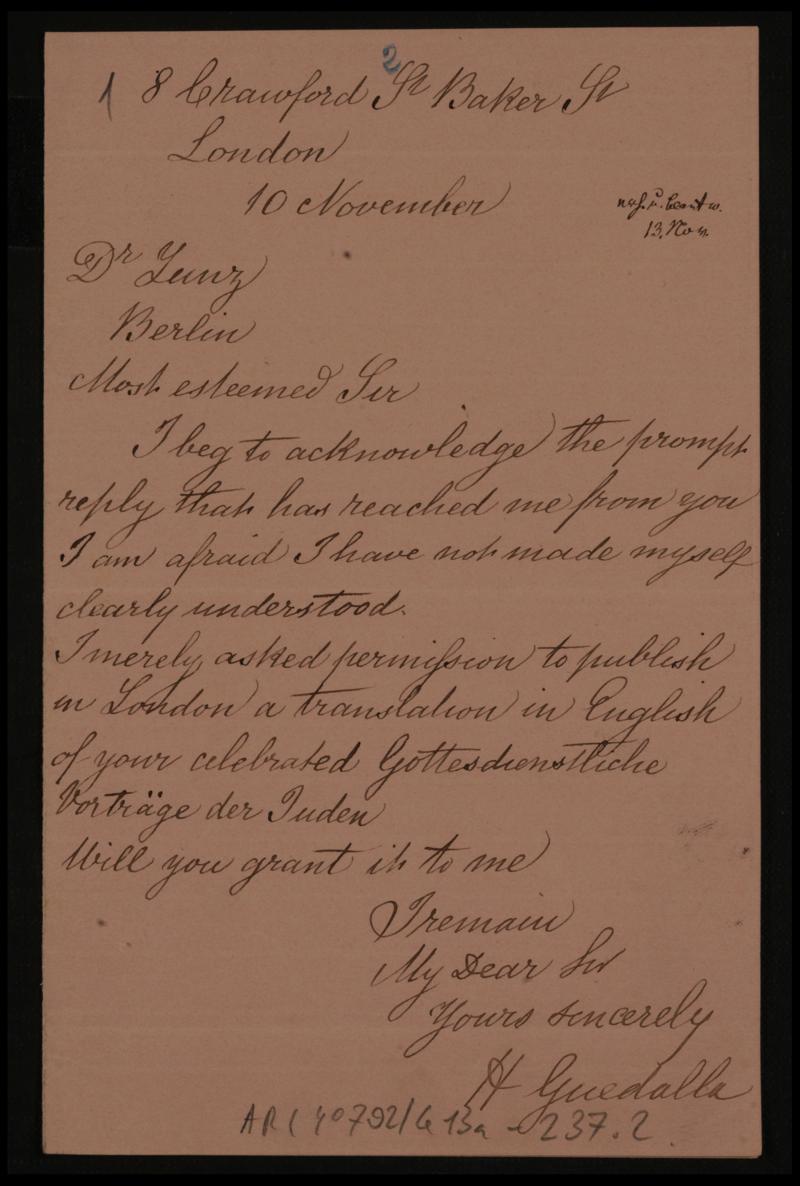 2
18 Crawford St Baker St
London
10 November
13. Nov.
Dr Zunz
Berlin
Most esteemed Sir
I beg to acknowledge the prompt
reply that has reached me from you
I am afraid I have not made myself
clearly understood.
I merely asked permission to publish
in London a translation in English
of your celebrated Gottesdienstliche
Vorträge der Juden
Will you grant it to me
I remain
My Dear Sir
Yours sincerely
H Guedalla
AR ( 4° 792/G 13a - 237.2